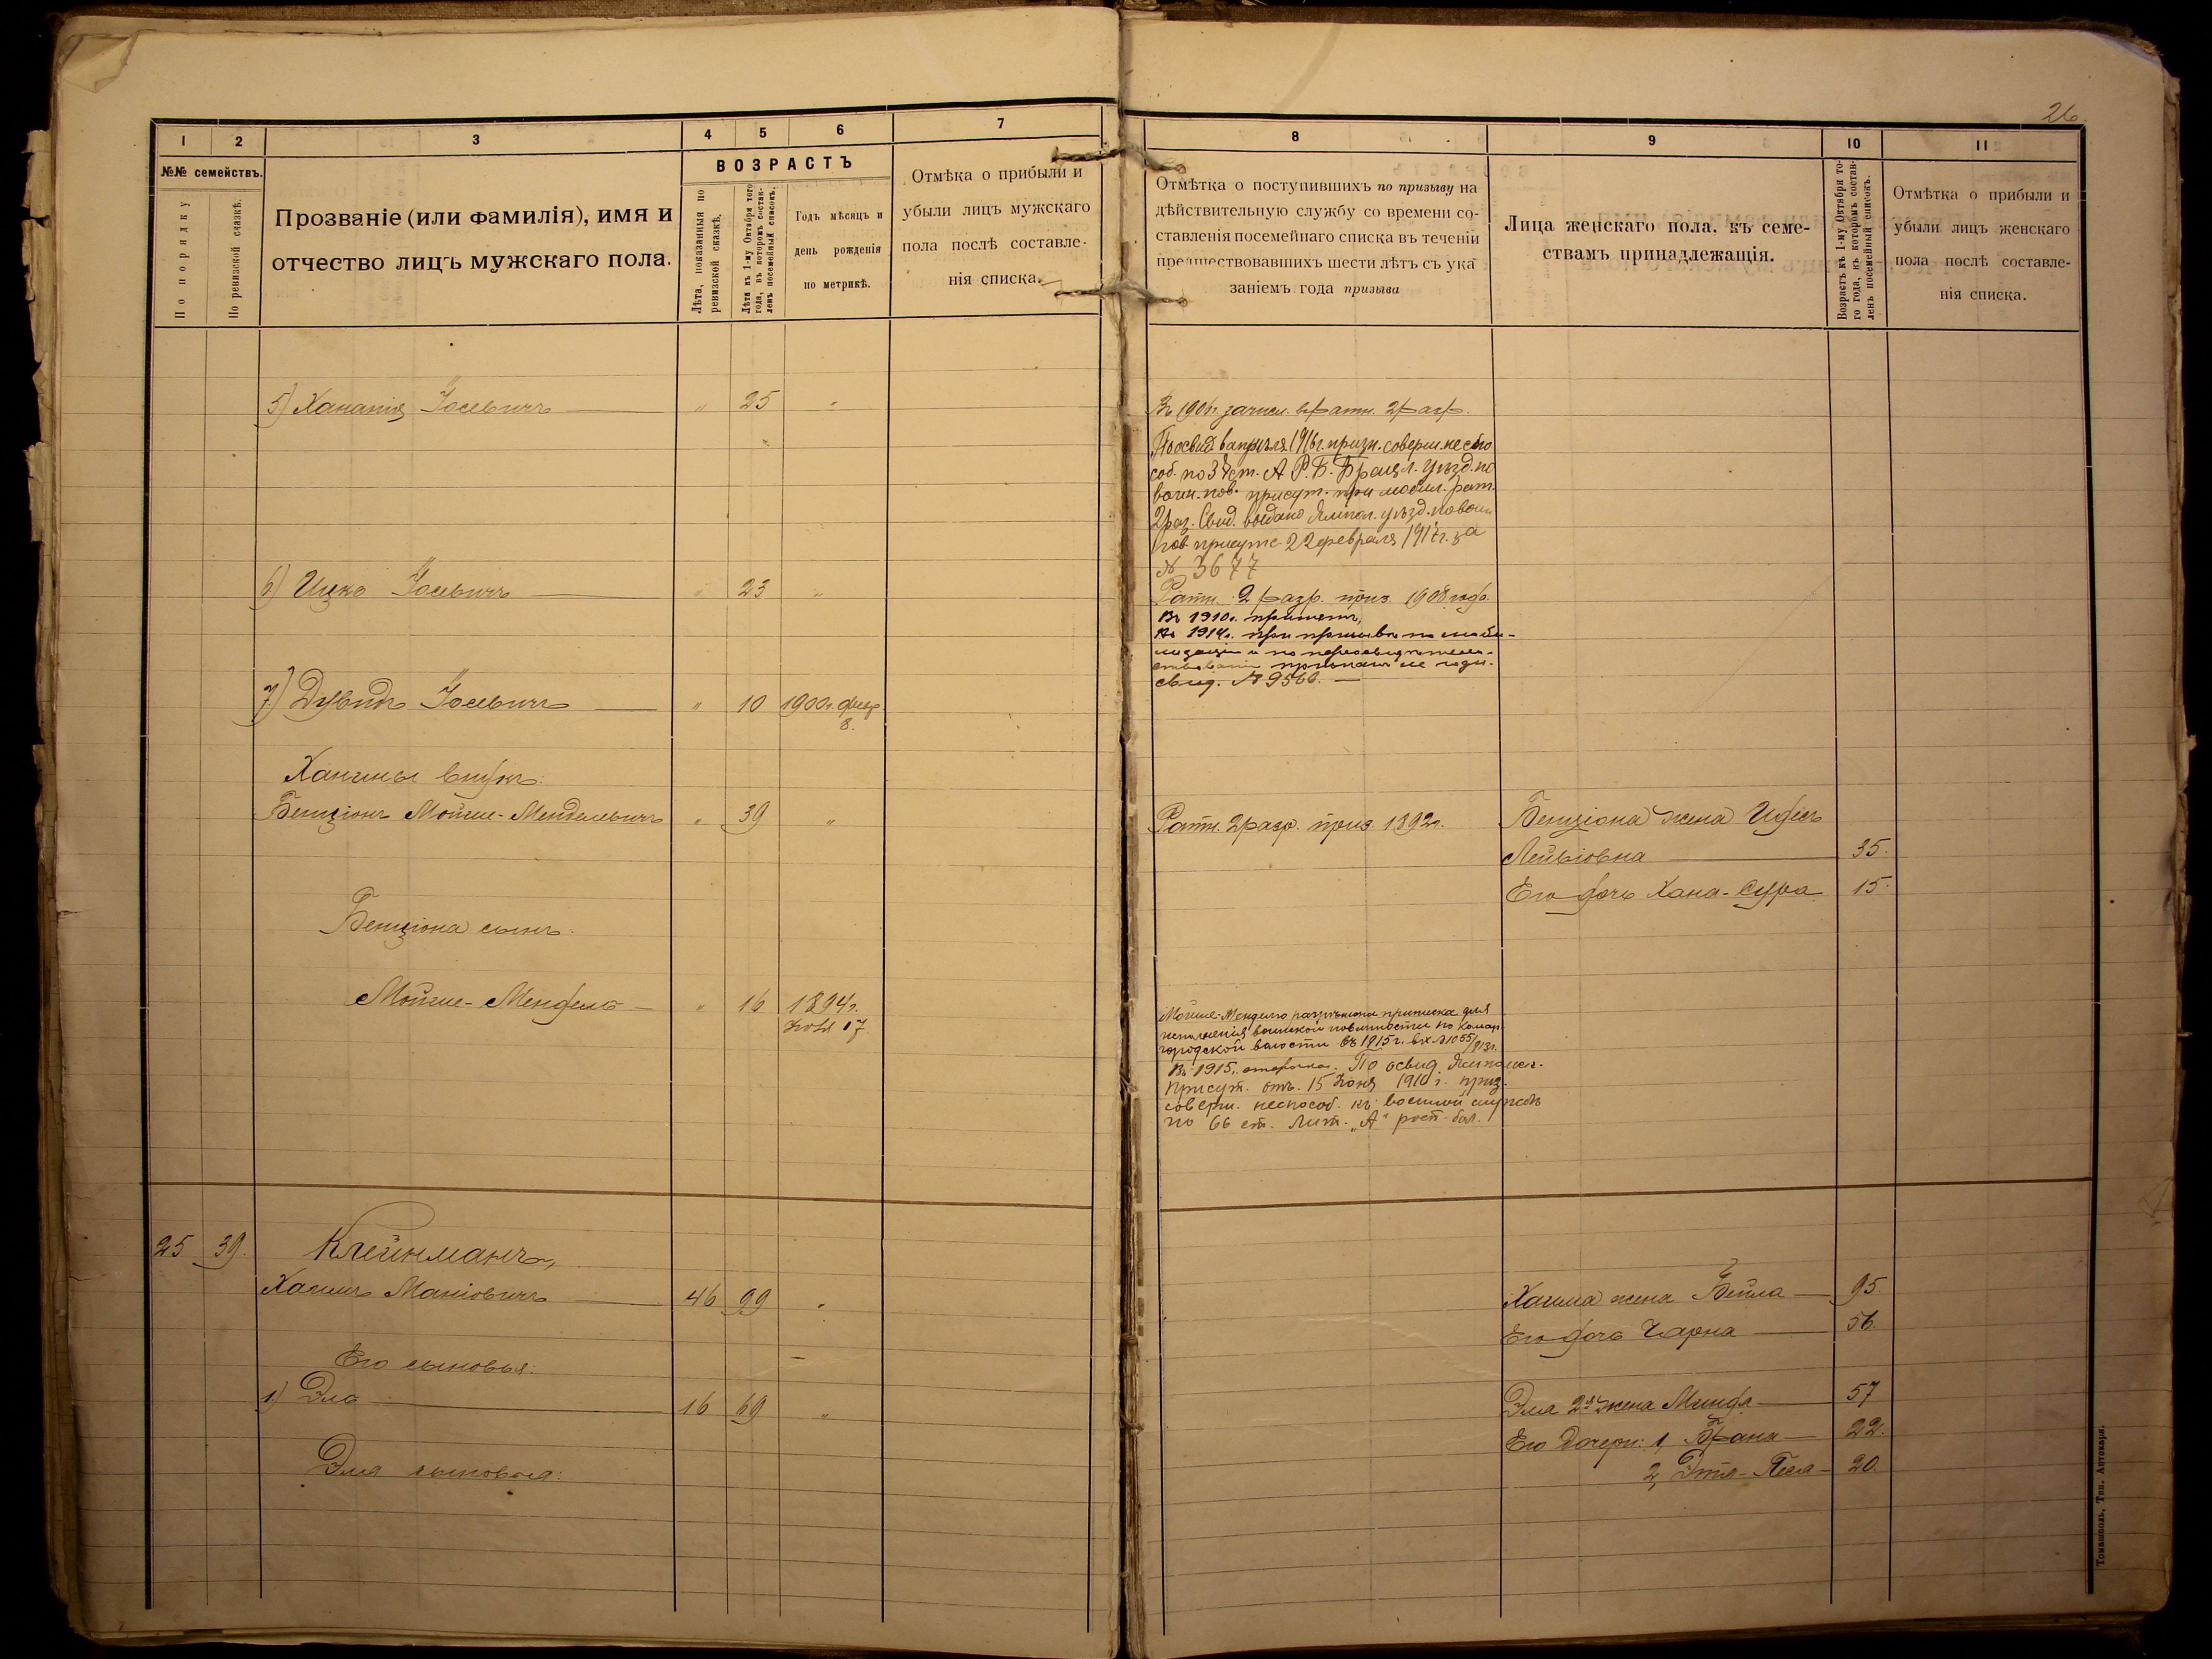 26.
1 2 3 4 5 6 7
№№ семействъ.
По порядку
По ревизской сказкѣ.
Прозваніе (или фамилія), имя и
отчество лицъ мужскаго пола.
ВОЗРАСТЪ
Лѣта, показанныя по
ревизской сказкѣ.
Лѣта къ 1-му Октября того
года, въ которомъ состав-
ленъ посемейный списокъ.
Годъ мѣсяцъ и
день рожденія
по метрикѣ.
Отмѣка о прибыли и
убыли лицъ мужскаго
пола послѣ составле-
нія списка.
8 9 10 11
Отмѣтка о поступившихъ по призыву на
дѣйствительную службу со времени со-
ставленія посемейнаго списка въ теченіи
предшествовавшихъ шести лѣтъ съ ука
заніемъ года призыва
Лица женскаго пола, къ семе-
ствамъ принадлежащія.
Возрастъ къ 1-му Октября то-
го года, въ которомъ состав-
ленъ посемейный списокъ.
Отмѣтка о прибыли и
убыли лицъ женскаго
пола послѣ составле-
нія списка.
5) Хананія Іосевичъ — " 25 "
зачисл. въ ратн. 2 разр.
1916 г. призн. соверш. неспо
соб. по 3 ст. А Р. Б. Брацл. уѣзд. по
воин. пов. присут. при мобил. рат.
2 раз. Свид. выдано Ямпол. уѣзд. по воин
пов. присутс. 22 февраля 1917 г. за
№ 3677
6) Ицко Іосевичъ — " 23 "
Ратн. 2 разр. приз. 1908 года.
Въ 1910 г.
Въ 1914 г. при призывѣ по моби-
лизаціи и по переосвидѣтель-
ствованіи признанъ не годн.
свид. № 9566. —
7) Дувидъ Іосевичъ — " 10 1900 г. февр.
8.
Ханины внукъ:
Бенціонъ Мойше-Менделевичъ " 39 "
Ратн. 2 разр. приз. 1892 г.
Бенціона жена
Лейвіовна — 35.
Его дочь Хана-Сура 15.
Бенціона сынъ:
Мойше-Мендель — " 16 1894 г.
17.
Мойше-Менделю разрѣшена приписка для
исполненія воинской повинности по
городской волости въ 1915 г. вх. № 1055/913 г.
Въ 1915 г. По освид. Ямпольс.
присут. отъ 15 Іюня 1916 г. приз.
соверш. неспособ. къ военной службѣ
по 66 ст. Лит. „А" росп. бол.
25 39. Клейнманъ,
Хаимъ Маніовичъ — 46 99 "
Хаима жена Бейла — 95.
Его дочь Чарна — 56.
Его сыновья:
1) Эль — 16 69 "
Эля 2я жена Минда — 57
Его дочери: 1, Брана — 22.
2, Этя-Песя — 20.
Эля сыновья:
Томашполь, Тип. Аптекаря.